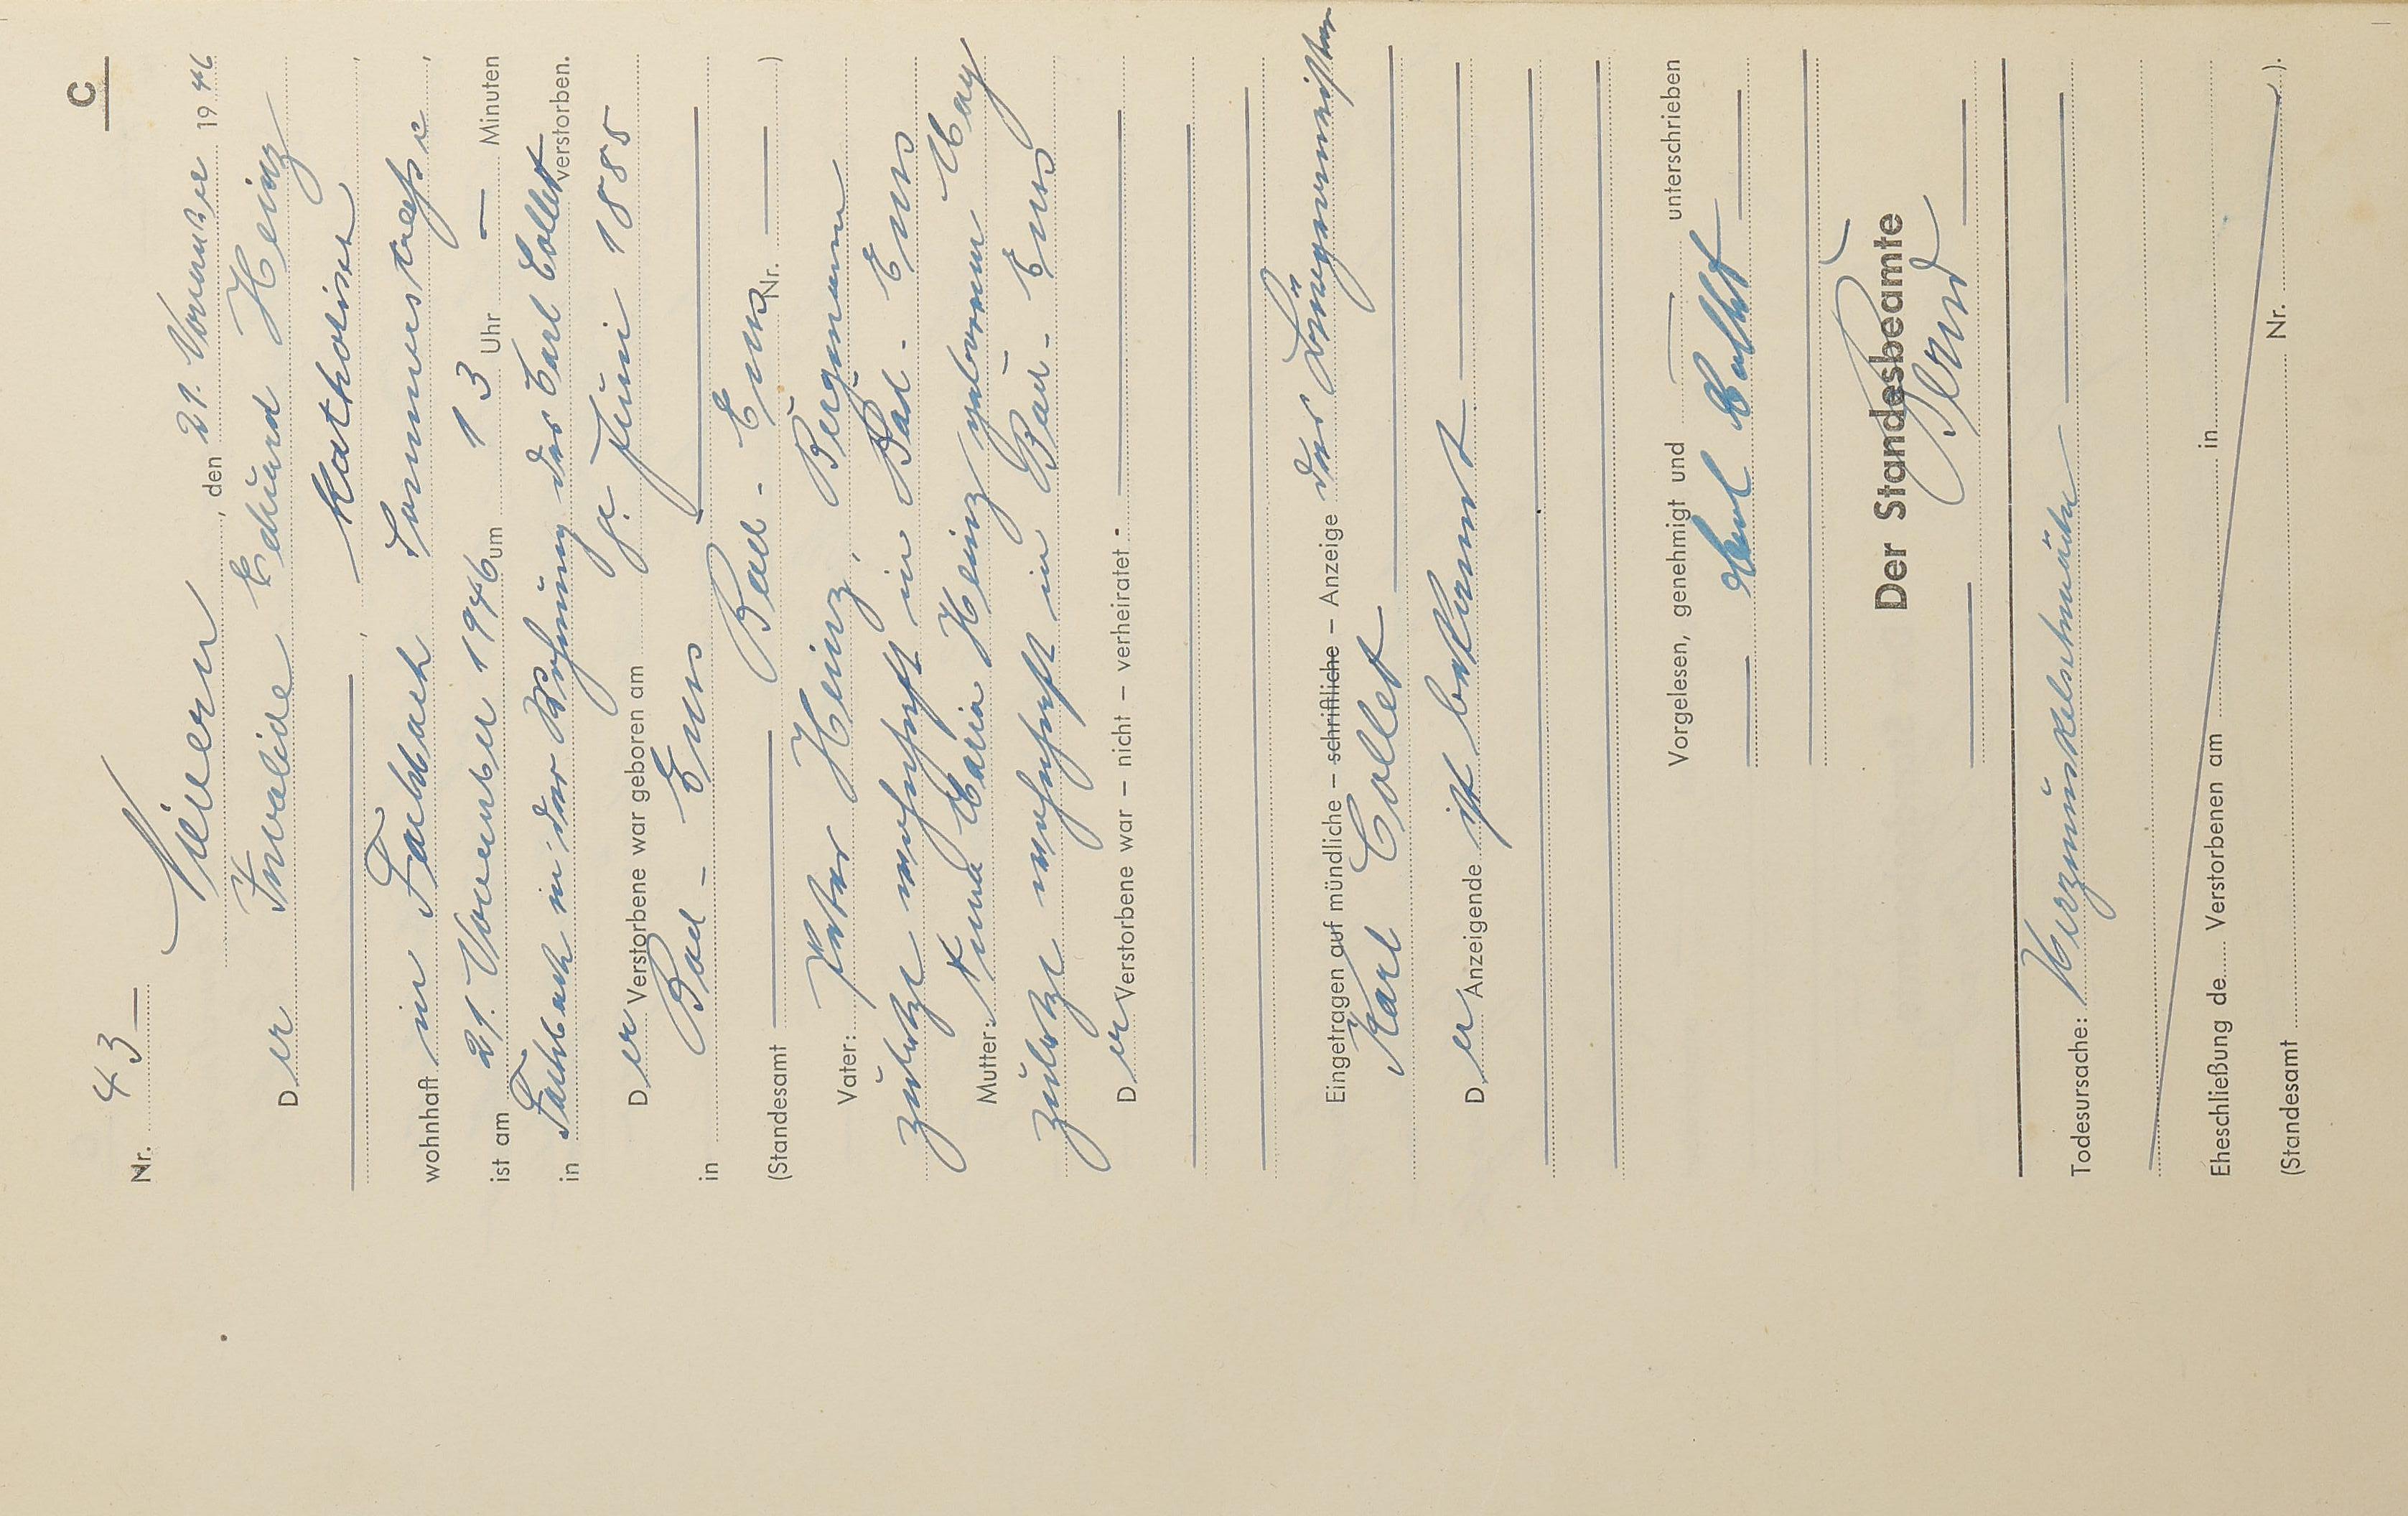 C
Nr. 43
Nievern, den 21. November 1946
Der Invalide Eduard Heinz
katholisch,
wohnhaft in Fachbach Lahnstraße,
ist am 21. November 1946 um 13 Uhr — Minuten
in Fachbach in der Wohnung des Karl Collet verstorben.
Der Verstorbene war geboren am 9. Juni 1885
in Bad-Ems
(Standesamt Bad-Ems Nr. — )
Vater: Peter Heinz, Bergmann
zuletzt wohnhaft in Bad-Ems
Mutter: Anna Maria Heinz geborene May
zuletzt wohnhaft in Bad-Ems
Der Verstorbene war – nicht – verheiratet -
Eingetragen auf mündliche – schriftliche – Anzeige des Bürgermeisters
Karl Collet
Der Anzeigende ist bekannt
Vorgelesen, genehmigt und — unterschrieben
Karl Collet
Der Standesbeamte
Todesursache: Herzmuskelschwäche
Eheschließung de Verstorbenen am in
(Standesamt Nr. ).